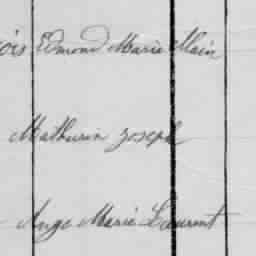 ois Edmond Marie Alain
Mathurin Joseph
Ange Marie Laurent